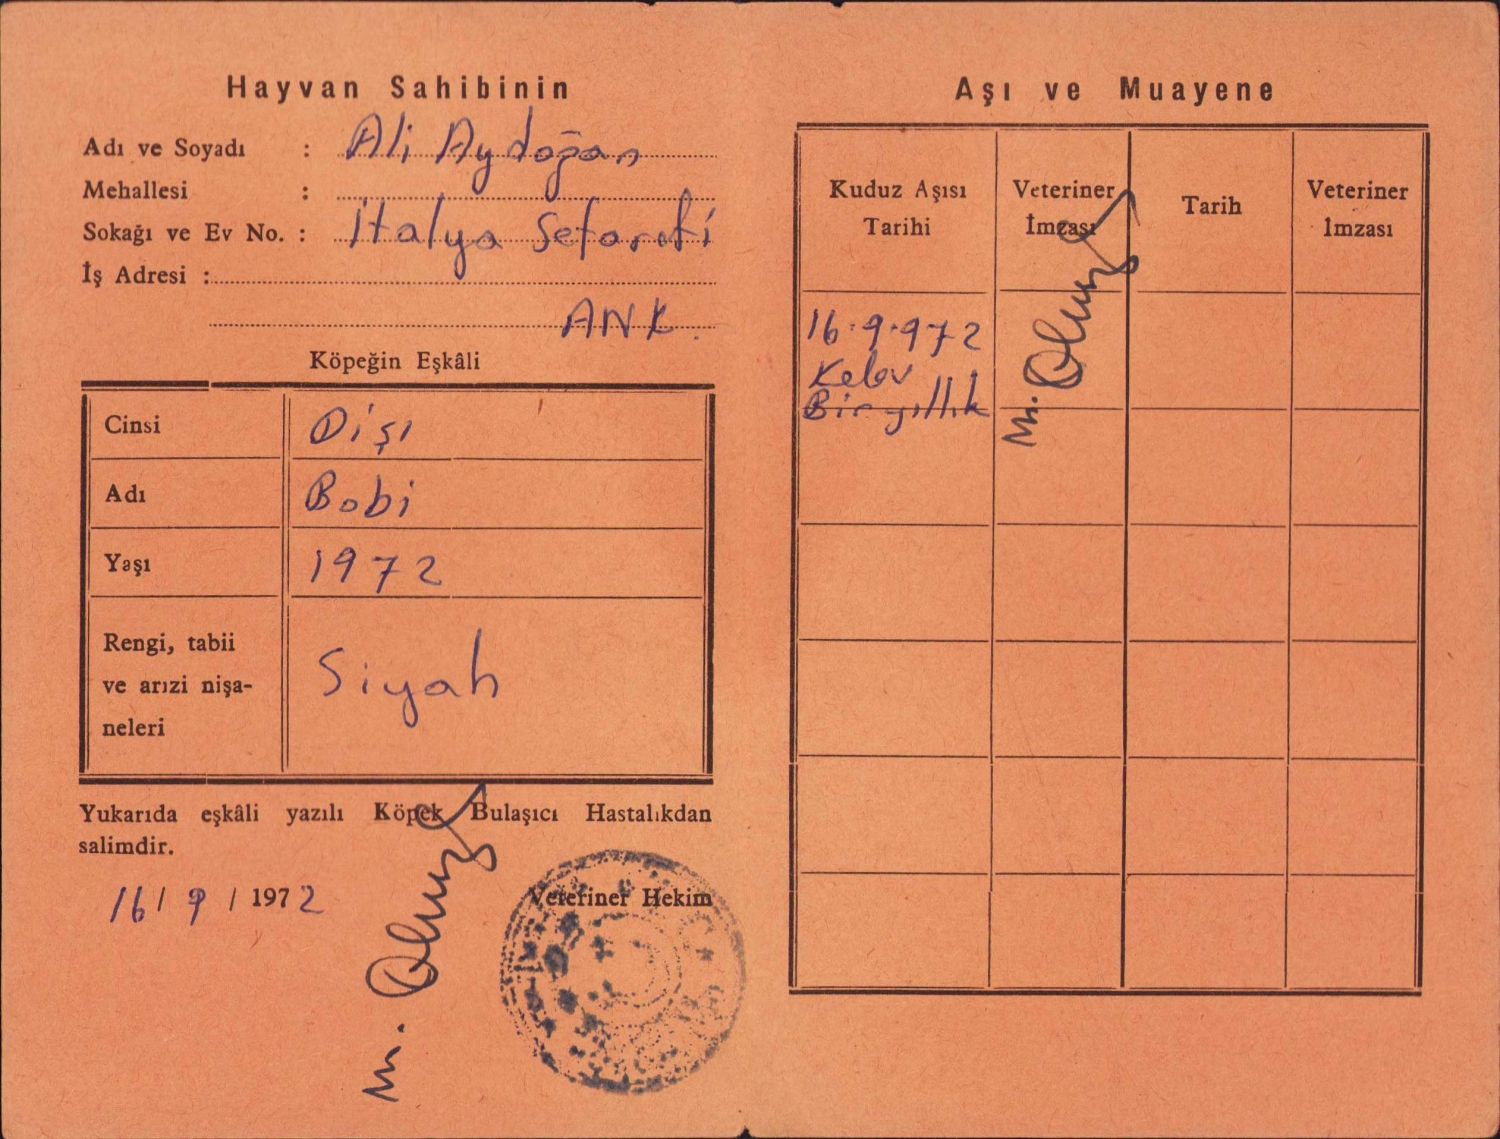 Hayvan Sahibinin
Adı ve Soyadı : Ali Aydoğan
Mehallesi :
Sokağı ve Ev No. : İtalya Sefareti
İş Adresi :
ANK.
Köpeğin Eşkâli
Cinsi Dişı
Adı Bobi
Yaşı 1972
Rengi, tabii
ve arızi nişa-
neleri
Siyah
Yukarıda eşkâli yazılı Köpek Bulaşıcı Hastalıkdan
salimdir.
16 / 9 / 1972
Veteriner Hekim
M.
Aşı ve Muayene
Kuduz Aşısı
Tarihi
Veteriner
İmzası
Tarih
Veteriner
İmzası
16.9.972
Kelev
Bir yıllık
M.